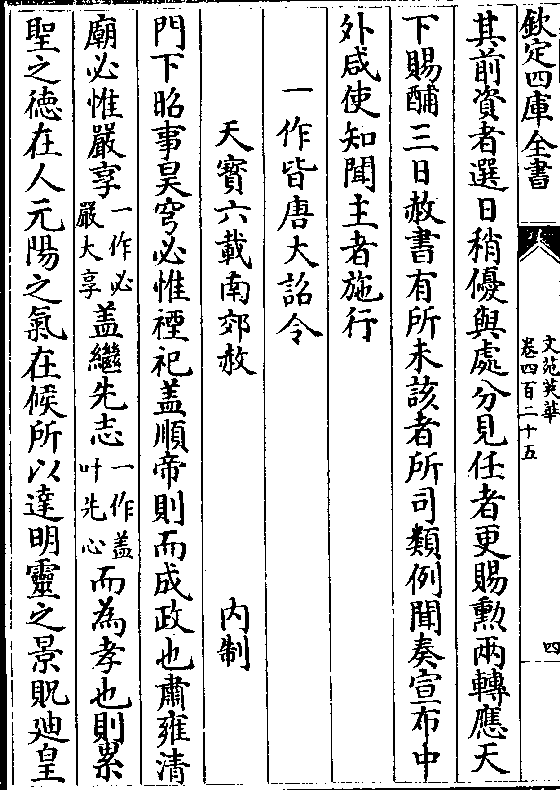 欽定四庫全書
文苑英華
卷四百二十五
四
其前資者選日稍優與處分見任者更賜勲兩轉應天
下賜酺三日赦書有所未該者所司類例聞奏宣布中
外咸使知聞主者施行
一作皆唐大詔令
天寳六載南郊赦
内制
門下昭事昊穹必惟禋祀盖順帝則而成政也肅雍清
廟必惟嚴享
一作必
嚴大享
盖繼先志
一作盖
叶先心
而為孝也則累
聖之徳在人元陽之氣在候所以達明靈之景貺廸皇